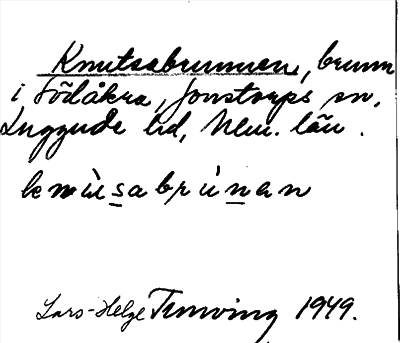 Knutsabrunnen, brunn
i Södåkra, Jonstorps sn,
Luggude hd, Mlm. län.
knùsabrúnan
Lars-Helge Tunving 1949.